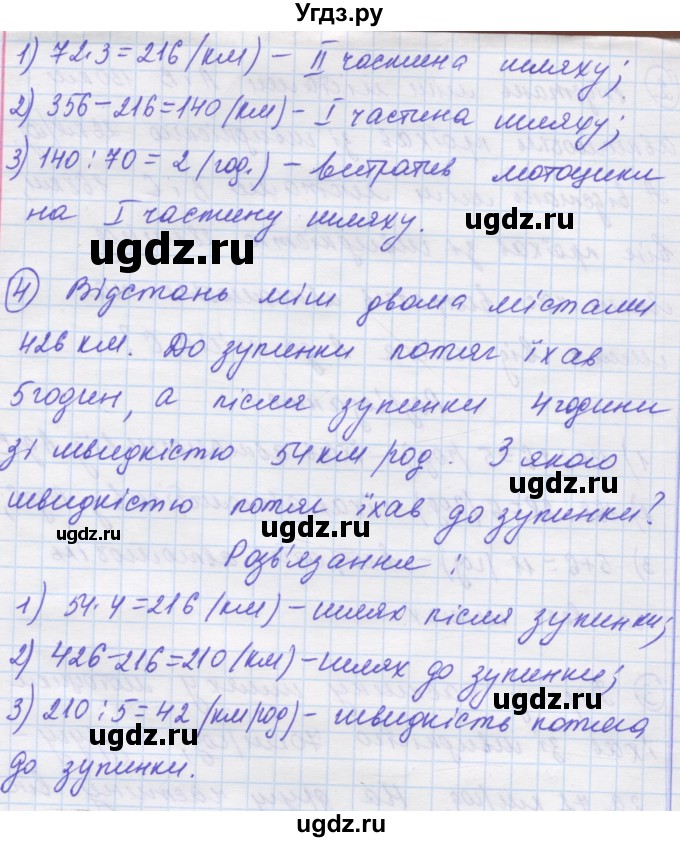 Угдз.ру
1) 72·3=216 (км) – II частина шляху;
2) 356–216=140 (км) – I частина шляху;
3) 140:70= 2 (год.) – витратив мотоцикл
на I частину шляху.
ugdz.ru
ugdz.ru
4 Відстань між двома містами
426 км. До зупинки потяг їхав
ugdz.ru
5 годин, а після зупинки 4 години
зі швидкістю 54 км/год. З якою
швидкістю потяг їхав до зупинки?
ugdz.ru
ugdz.ru
Розв'язання:
ugdz.ru
1) 54·4=216 (км) – шлях після зупинки;
2) 426–216=210 (км) – шлях до зупинки;
ugdz.ru
3) 210:5=42 (км/год) – швидкість потяга
ugdz.ru
до зупинки.
ugdz.ru
ugdz.ru